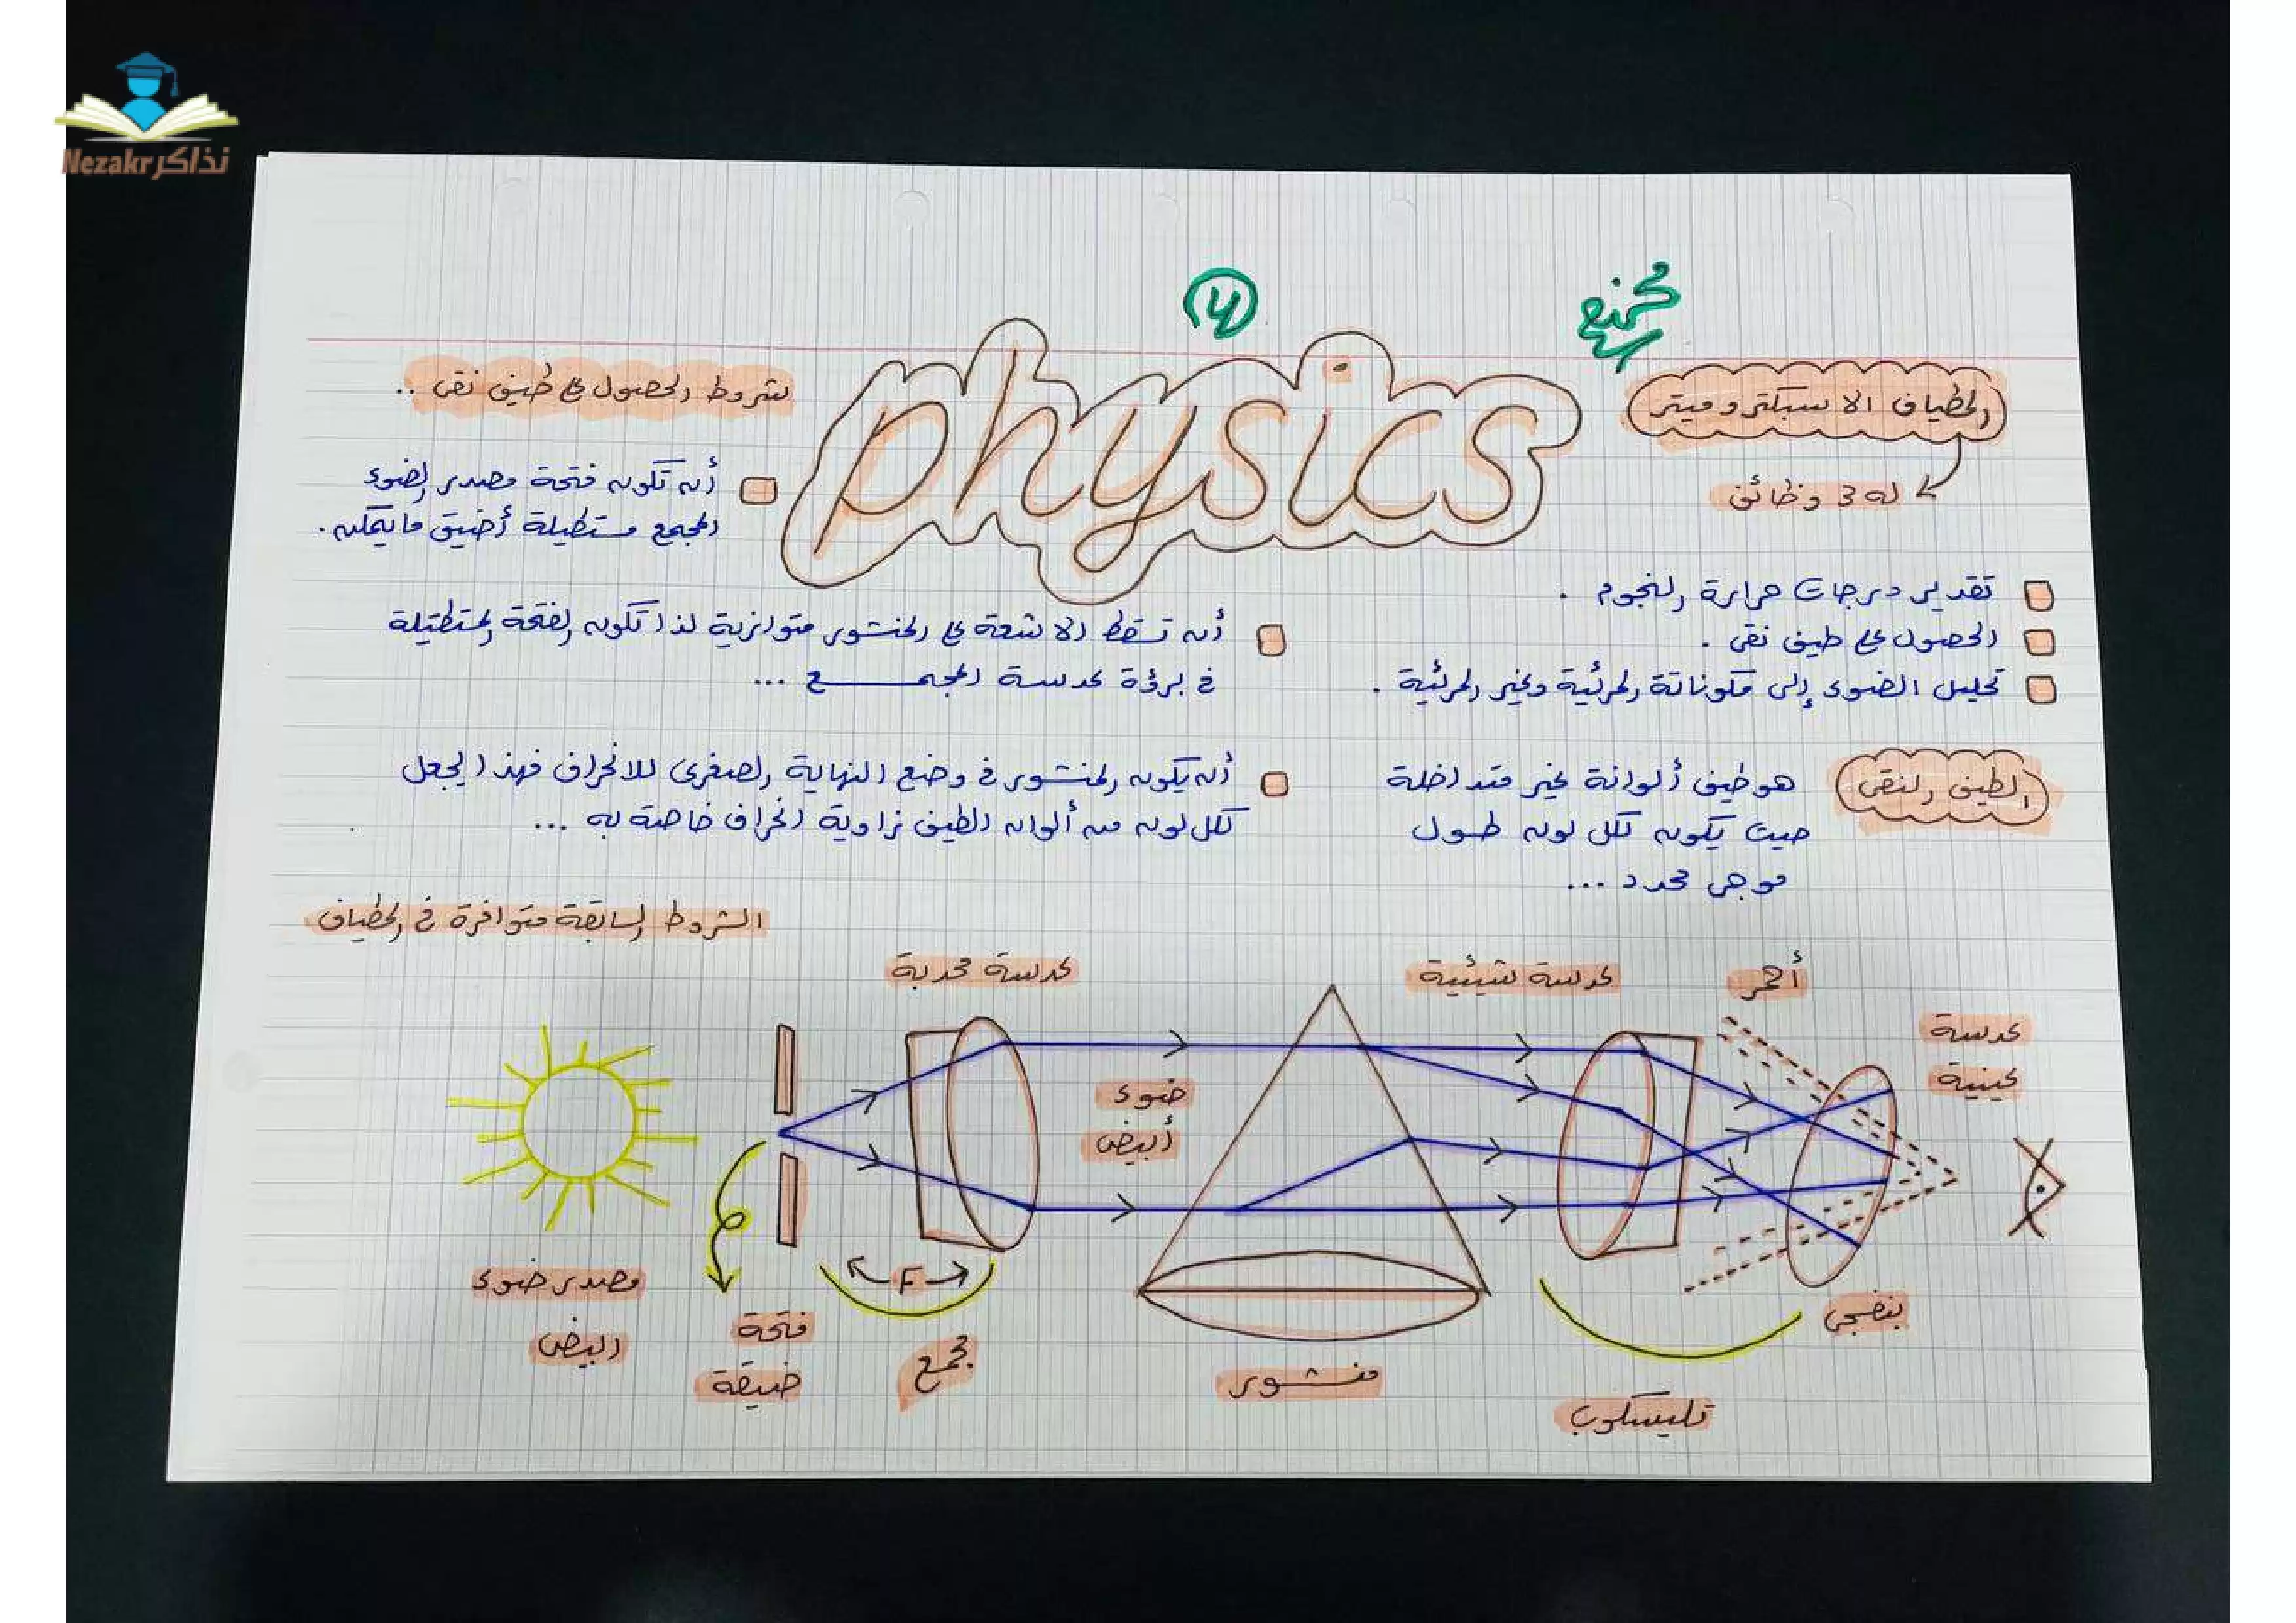 Nezakr نذاكر
physics
المطياف الاسبكتروميتر
له 3 وظائف
تقدير درجات حرارة النجوم .
الحصول على طيف نقى .
تحليل الضوء إلى مكوناتة المرئية وغير المرئية .
الطيف النقى
هو طيف ألوانة غير متداخلة
حيث يكون لكل لون طول
موجى محدد ...
شروط الحصول على طيف نقى ..
أن تكون فتحة مصدر الضوء
المجمع مستطيلة أضيق ما يمكن .
أن تسقط الاشعة على المنشور متوازية لذا تكون الفتحة المستطيلة
فى برؤة عدسة المجمع ...
أن يكون المنشور فى وضع النهاية الصغرى للانحراف فهذا يجعل
لكل لون من ألوان الطيف زاوية انحراف خاصة به ...
الشروط السابقة متوافرة فى المطياف
عدسة محدبة
عدسة شيئية
أحمر
عدسة
عينية
ضوء
أبيض
F
مصدر ضوء
ابيض
فتحة
ضيقة
مجمع
منشور
تليسكوب
بنفسجى